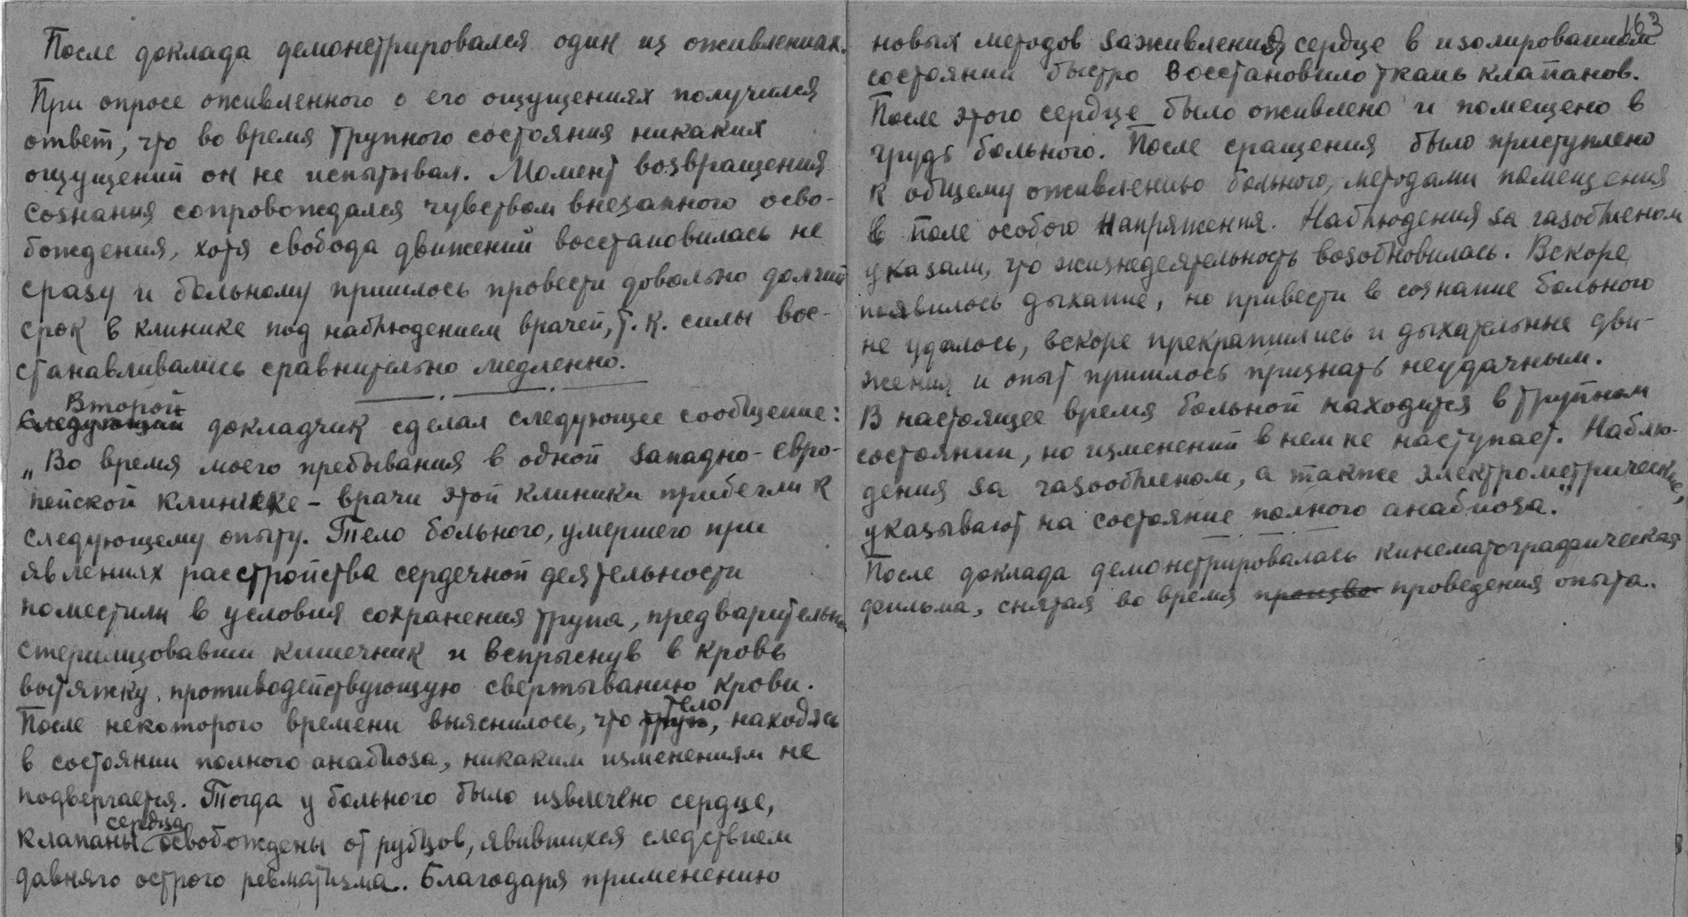 После доклада демонстрировался один из оживленных.
При опросе оживленного о его ощущениях получился
ответ, что во время трупного состояния никаких
ощущений он не испытывал. Момент возвращения
сознания сопровождался чувством внезапного осво-
бождения, хотя свобода движений восстановилась не
сразу и больному пришлось провести довольно долгий
срок в клинике под наблюдением врачей, т.к. силы вос-
станавливались сравнительно медленно.
Второй
Следующий докладчик сделал следующее сообщение:
„Во время моего пребывания в одной западно-евро-
пейской клинике – врачи этой клиники прибегли к
следующему опыту. Тело больного, умершего при
явлениях расстройства сердечной деятельности
поместили в условия сохранения трупа, предварительно
стерилизовавши кишечник и вспрыснув в кровь
вытяжку, противодействующую свертыванию крови.
тело
После некоторого времени выяснилось, что труп, находясь
в состоянии полного анабиоза, никаким изменениям не
подвергается. Тогда у больного было извлечено сердце,
сердца
клапаны освобождены от рубцов, явившихся следствием
давняго острого ревматизма. Благодаря применению
163
новых методов заживления сердце в изолированном
состоянии быстро восстановило ткань клапанов.
После этого сердце было оживлено и помещено в
грудь больного. После сращения было приступлено
к общему оживлению больного, методами помещения
в поле особого напряжения. Наблюдения за газообменом
указали, что жизнедеятельность возобновилась. Вскоре
появилось дыхание, но привести в сознание больного
не удалось, вскоре прекратились и дыхательные дви-
жения и опыт пришлось признать неудачным.
В настоящее время больной находится в трупном
состоянии, но изменений в нем не наступает. Наблю-
дения за газообменом, а также электрометрические,
указывают на состояние полного анабиоза."
После доклада демонстрировалась кинематографическая
фильма, снятая во время произво проведения опыта.